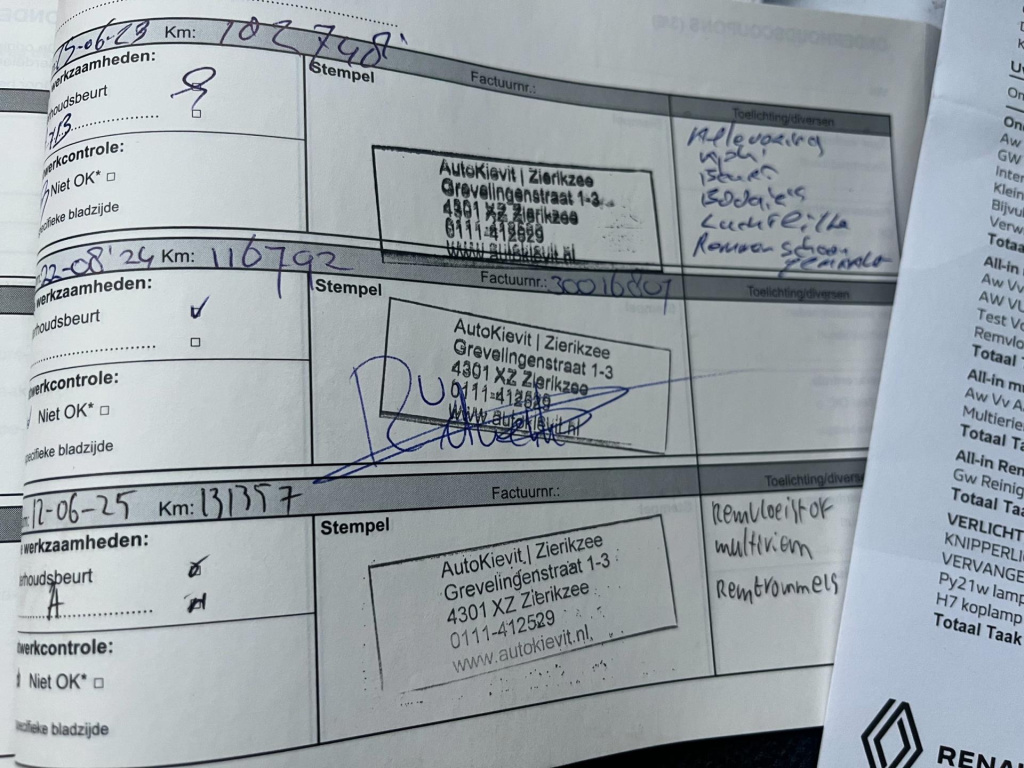 15-06-23 Km: 102748
werkzaamheden:
houdsbeurt
Stempel
Factuurnr.:
Toelichting/diversen
werkcontrole:
Niet OK*
ecifieke bladzijde
AutoKievit | Zierikzee
Grevelingenstraat 1-3
4301 XZ Zierikzee
0111-412529
www.autokievit.nl
Aflevering
Bougies
Luchtfilter
22-08'24 Km: 116792
werkzaamheden:
erhoudsbeurt
Stempel
Factuurnr.: 30016807
Toelichting/diversen
werkcontrole:
Niet OK*
pecifieke bladzijde
AutoKievit | Zierikzee
Grevelingenstraat 1-3
4301 XZ Zierikzee
0111-412529
www.autokievit.nl
12-06-25 Km: 131357
werkzaamheden:
erhoudsbeurt
A
Stempel
Factuurnr.:
Toelichting/divers
Remvloeistof
multiriem
Remtrommels
werkcontrole:
Niet OK*
pecifieke bladzijde
AutoKievit | Zierikzee
Grevelingenstraat 1-3
4301 XZ Zierikzee
0111-412529
www.autokievit.nl
Aw
GW
Inter
Klein
Bijvul
Verw
Totaa
All-in
Aw Vv
AW VL
Test Vo
Remvlo
Totaal
All-in m
Aw Vv A
Multierie
Totaal Ta
All-in Rem
Gw Reinig
Totaal Taa
VERLICHT
KNIPPERLI
VERVANGE
Py21w lamp
H7 koplamp
Totaal Taak
RENA